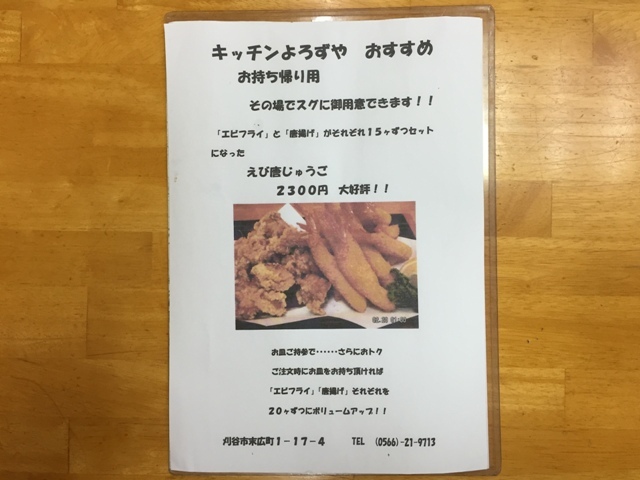 キッチンよろずや　おすすめ
お持ち帰り用
その場でスグに御用意できます！！
「エビフライ」と「唐揚げ」がそれぞれ１５ヶずつセット
になった
えび唐じゅうご
２３００円　大好評！！
お皿ご持参で‥‥‥さらにおトク
ご注文時にお皿をお持ち頂ければ
「エビフライ」「唐揚げ」それぞれを
２０ヶずつにボリュームアップ！！
刈谷市末広町１－１７－４　TEL　(0566)-21-9713